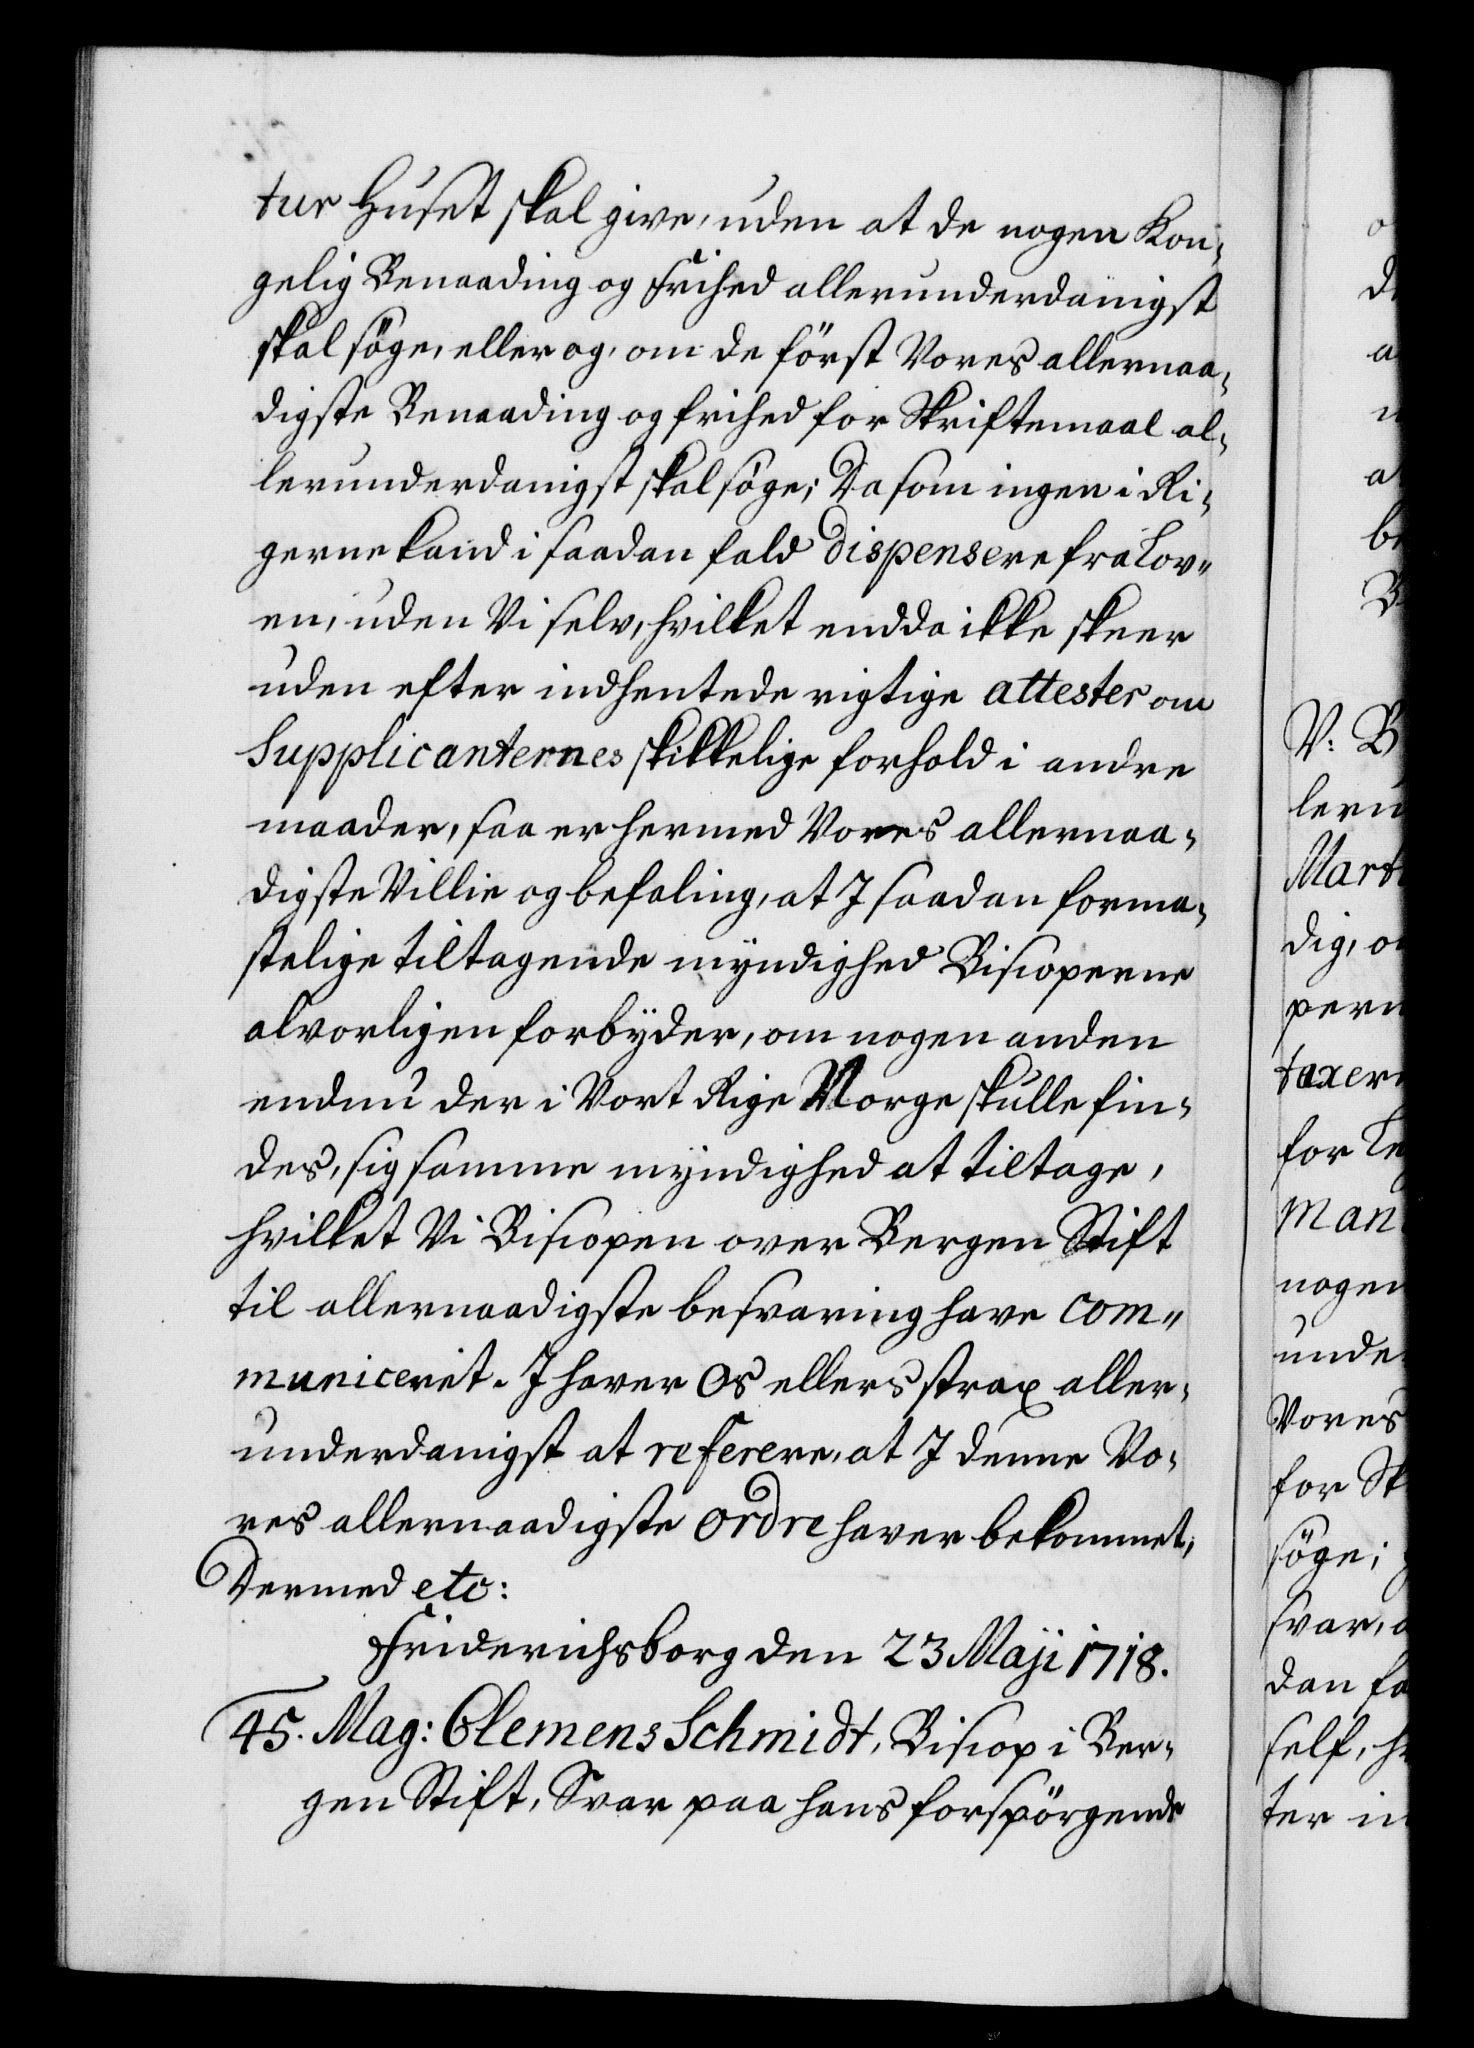 tur Huset skal give, uden at de nogen Kon-
gelig Benaading og frihed allerunderdanigst
skal söge, eller og, om de först Vores allernaa-
digste Benaading og frihed for Skriftemaal al-
lerunderdanigst skal söge; Da som ingen i Ri-
gerne kand i saadan fald dispensere fra Lov-
en, uden Vi selv, hvilket endda ikke skeer
uden efter indhentede rigtige attester om
Supplicanternes skikkelige forhold i andre
maader, saa er hermed Vores allernaa-
digste Villie og befaling, at I saadan forma-
stelige tiltagende mÿndighed Bisioperne
alvorligen forbÿder, om nogen anden
endnu der i Vort Rige Norge skulle fin-
des, sig samme mÿndighed at tiltage,
hvilket Vi Bisiopen over Bergen Stift
til allernaadigste besvaring have com-
municerit. I haver Os ellers strax aller-
underdanigst at referere, at I denne Vo-
res allernaadigste ordre haver bekommet,
Dermed etc:
Friderichsborg den 23 Maji 1718.
45. Mag: Clemens Schmidt, Bisiop i Ber-
gen Stift, Svar paa hans forspörgende
V: B
leru
Mart
dig, o
pern
taxer
for Le
man
nogen
unde
Vores
for Sk
söge;
svar, o
dan fa
self, h
ter in